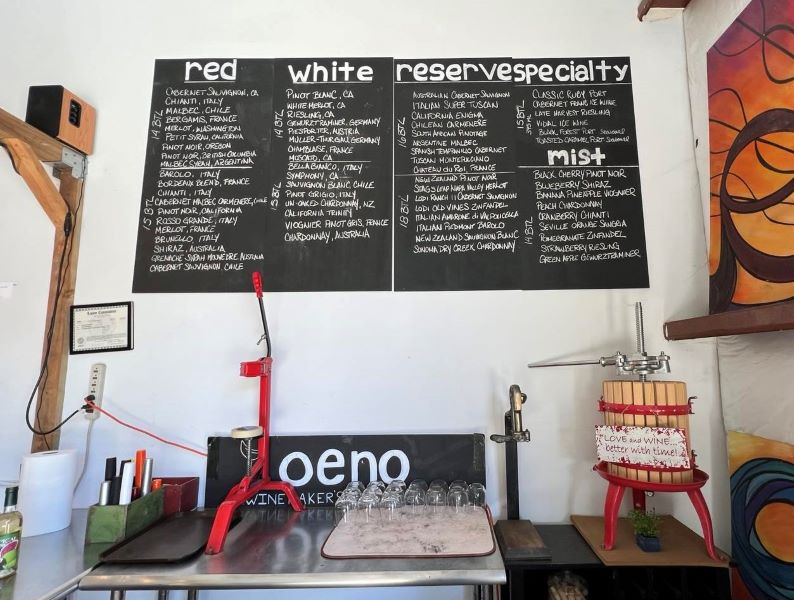 red
14 BTL
CABERNET SAUVIGNON, CA
CHIANTI, ITALY
MALBEC, CHILE
BERGAMIS, FRANCE
MERLOT, WASHINGTON
PETIT SYRAH, CALIFORNIA
PINOT NOIR, OREGON
PINOT NOIR, BRITISH COLUMBIA
MALBEC SYRAH, ARGENTINA
15 BTL
BAROLO, ITALY
BORDEAUX BLEND, FRANCE
CHIANTI, ITALY
CABERNET MALBEC CARMENERE, CHILE
PINOT NOIR, CALIFORNIA
ROSSO GRANDE, ITALY
MERLOT, FRANCE
BRUNELLO, ITALY
SHIRAZ, AUSTRALIA
GRENACHE SYRAH MOURVEDRE AUSTRALIA
CABERNET SAUVIGNON CHILE
white
14 BTL
PINOT BLANC, CA
WHITE MERLOT, CA
RIESLING, CA
GEWURZTRAMINER, GERMANY
PIESPORTER, AUSTRIA
MÜLLER-THURGAU, GERMANY
CHAMBLAISE, FRANCE
MOSCATO, CA
15 BTL
BELLA BIANCO, ITALY
SYMPHONY, CA
SAUVIGNON BLANC CHILE
PINOT GRIGIO, ITALY
UN-OAKED CHARDONNAY, NZ
CALIFORNIA TRINITY
VIOGNIER PINOT GRIS, FRANCE
CHARDONNAY, AUSTRALIA
reserve
16 BTL
AUSTRALIAN CABERNET SAUVIGNON
ITALIAN SUPER TUSCAN
CALIFORNIA ENIGMA
CHILEAN CARMENERE
SOUTH AFRICAN PINOTAGE
ARGENTINE MALBEC
SPANISH TEMPRANILLO CABERNET
TUSCAN MONTEPULCIANO
CHATEAU DU ROI, FRANCE
18 BTL
NEW ZEALAND PINOT NOIR
STAG'S LEAP NAPA VALLEY MERLOT
LODI RANCH 11 CABERNET SAUVIGNON
LODI OLD VINES ZINFANDEL
ITALIAN AMARONE di VALPOLICELLA
ITALIAN PIEDMONT BAROLO
NEW ZEALAND SAUVIGNON BLANC
SONOMA DRY CREEK CHARDONNAY
specialty
15 BTL
375 ML
CLASSIC RUBY PORT
CABERNET FRANC ICE WINE
LATE HARVEST RIESLING
VIDAL ICE WINE
BLACK FOREST PORT
TOASTED CARAMEL PORT
mist
14 BTL
BLACK CHERRY PINOT NOIR
BLUEBERRY SHIRAZ
BANANA PINEAPPLE VIOGNIER
PEACH CHARDONNAY
CRANBERRY CHIANTI
SEVILLE ORANGE SANGRIA
POMEGRANATE ZINFANDEL
STRAWBERRY RIESLING
GREEN APPLE GEWURZTRAMINER
oeno
WINEMAKER'S
LOVE and WINE...
better with time!